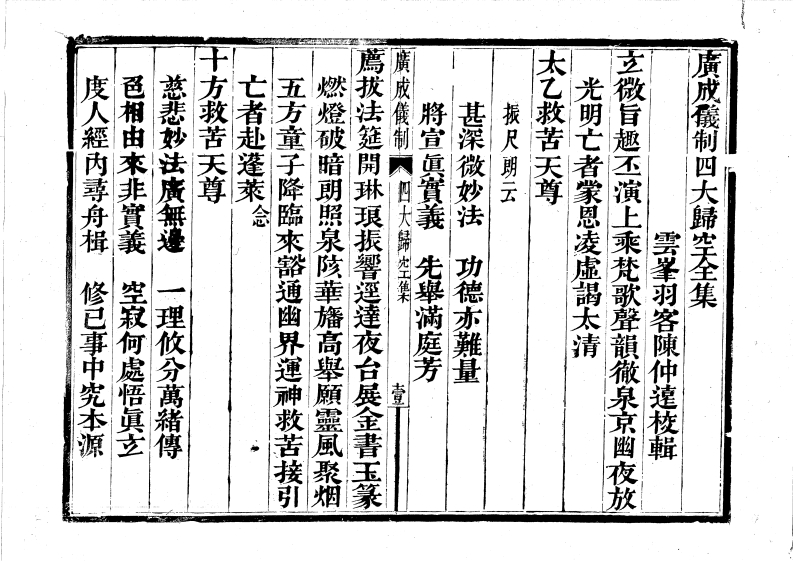 廣成儀制四大歸空全集
雲峯羽客陳仲遠校輯
玄微旨趣丕演上乘梵歌聲韻徹泉京幽夜放
光明亡者蒙恩凌虛謁太清
太乙救苦天尊
振尺朗云
甚深微妙法　功德亦難量
將宣眞實義　先舉滿庭芳
廣成儀制　四大歸空集　壹
薦拔法筵開琳琅振響逕達夜台展金書玉篆
燃燈破暗朗照泉陔華旛高舉願靈風聚烟
五方童子降臨來豁通幽界運神救苦接引
亡者赴蓬萊念
十方救苦天尊
慈悲妙法廣無邊　一理攸分萬緒傳
色相由來非實義　空寂何處悟眞玄
度人經內尋舟楫　修已事中究本源